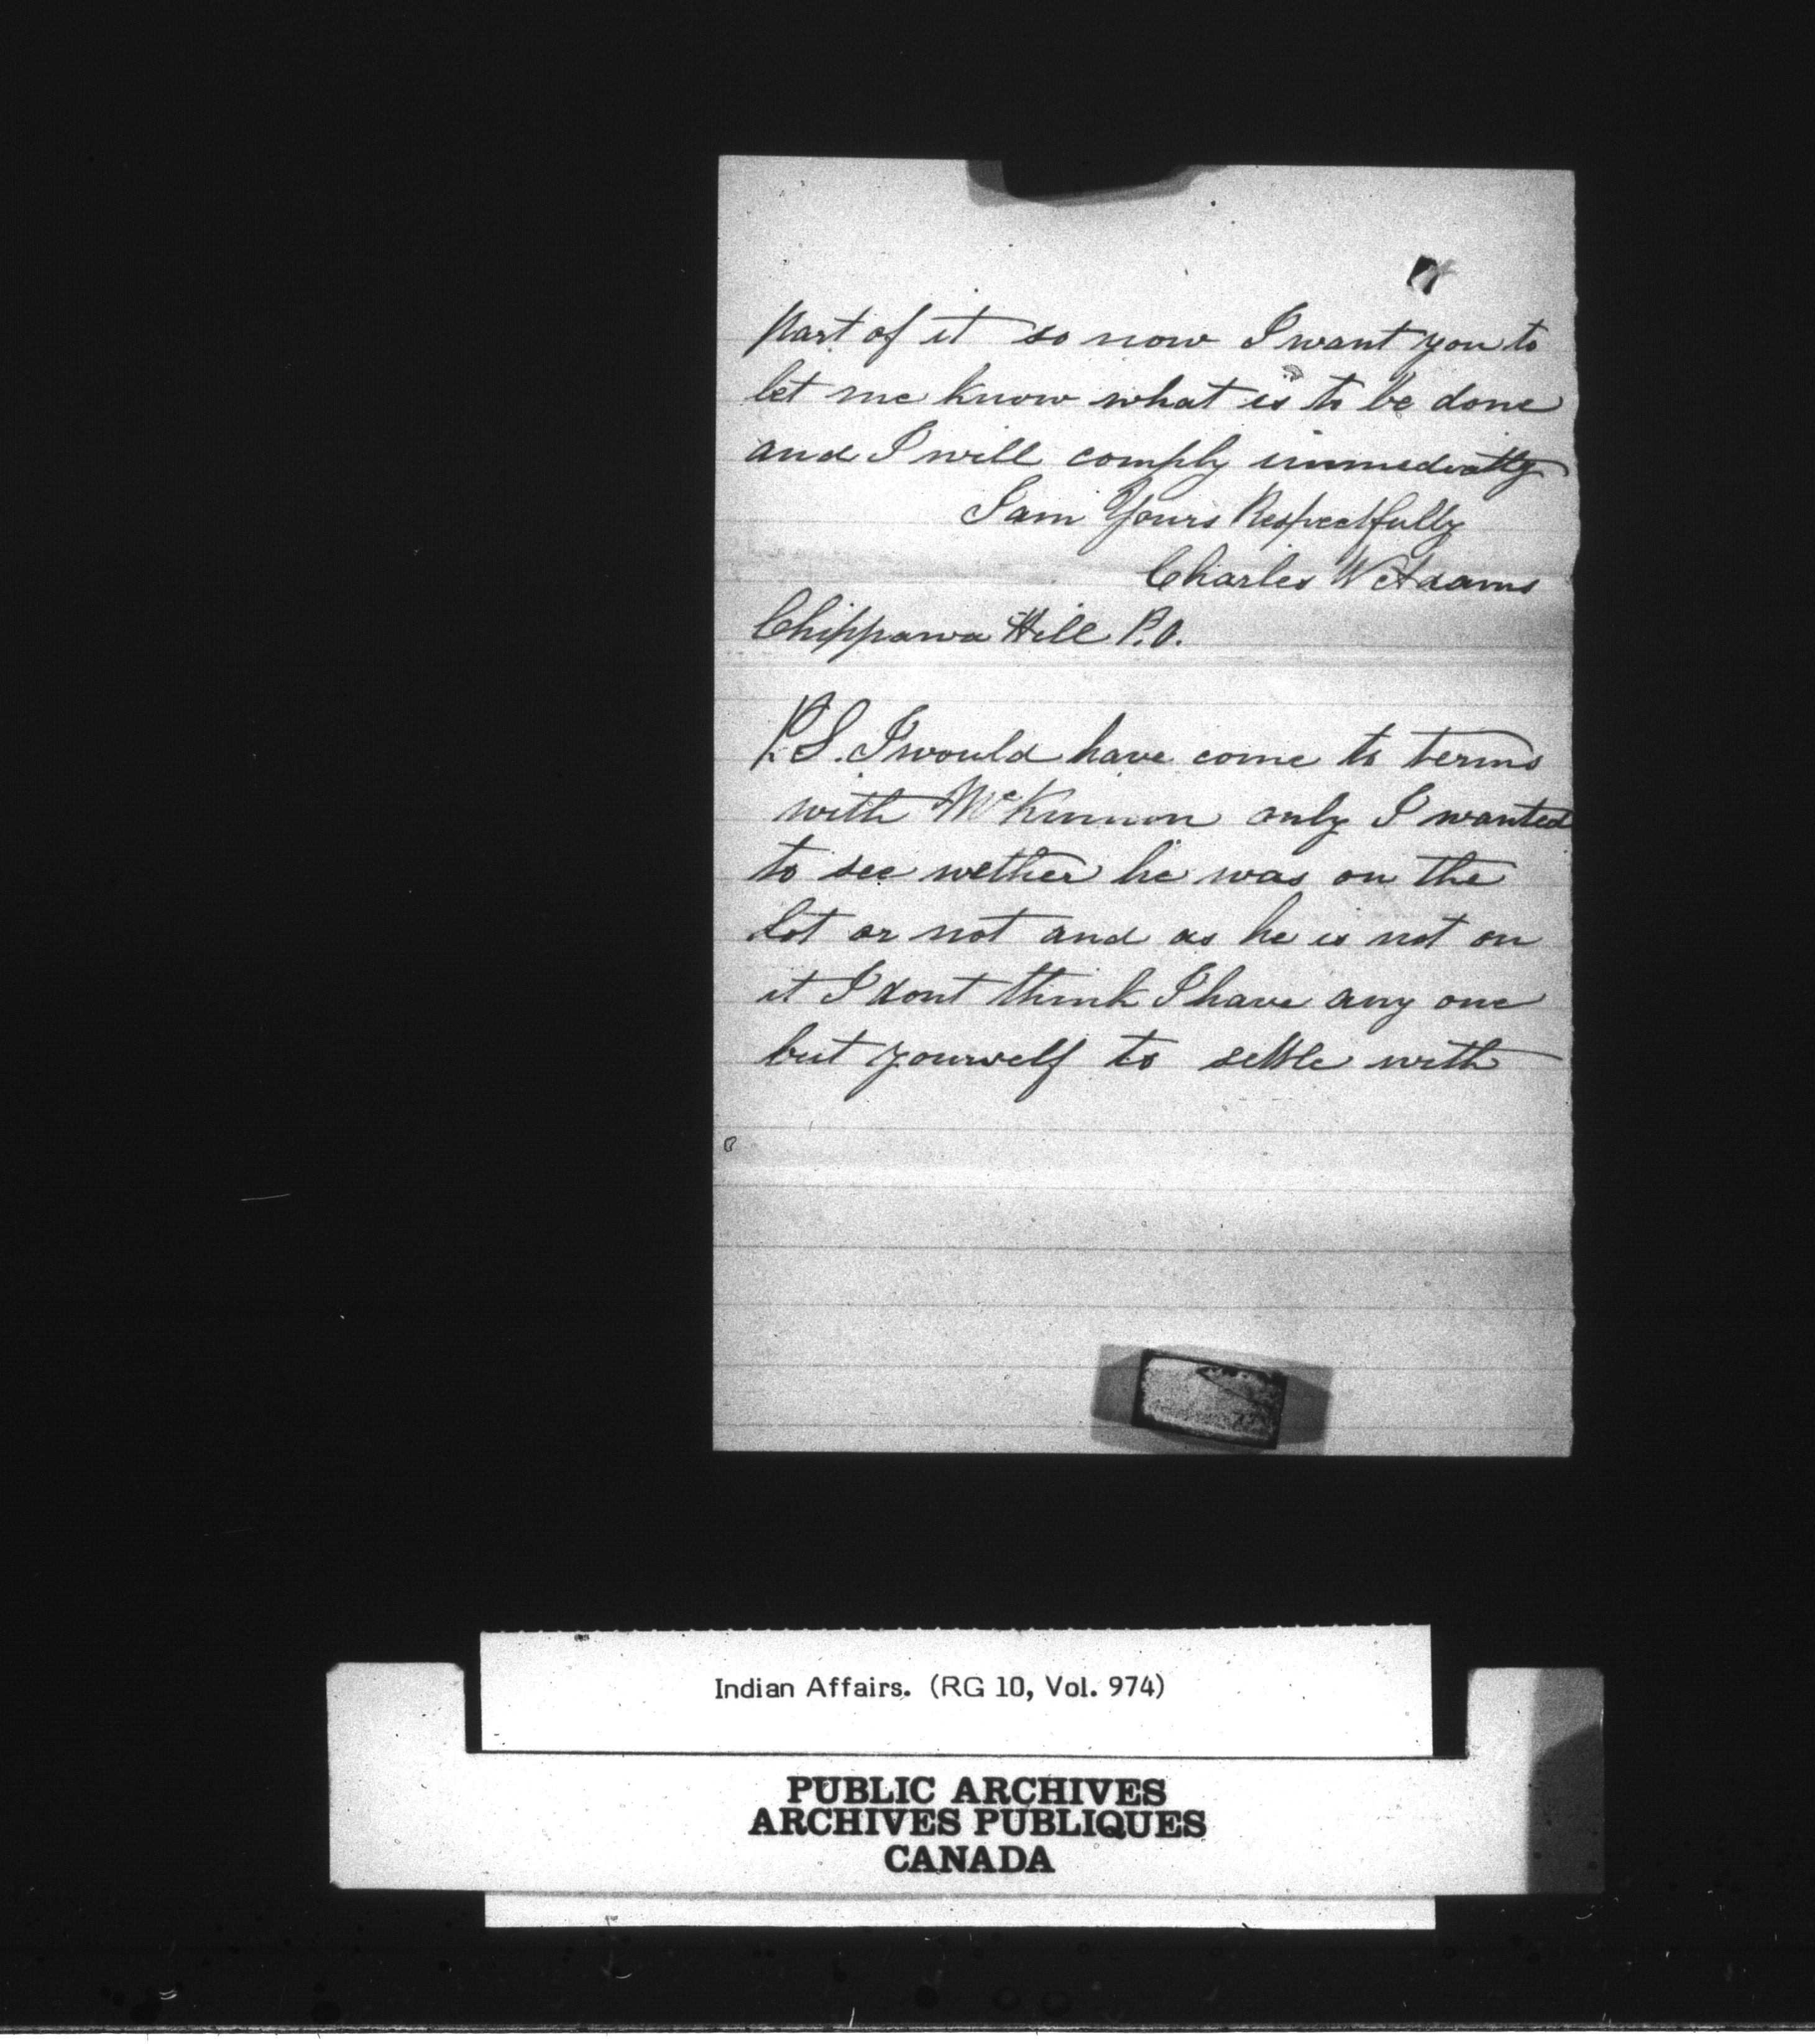 part of it so now I want you to
let me know what is to be done
and I will comply immediatly
I am Yours Respectfully
Charles W Adams
Chippawa Hill P.O.
P.S. I would have come to terms
with McKinnon only I wanted
to see wether he was on the
Lot or not and as he is not on
it I dont think I have any one
but yourself to settle with
Indian Affairs. (RG 10, Vol. 974)
PUBLIC ARCHIVES
ARCHIVES PUBLIQUES
CANADA